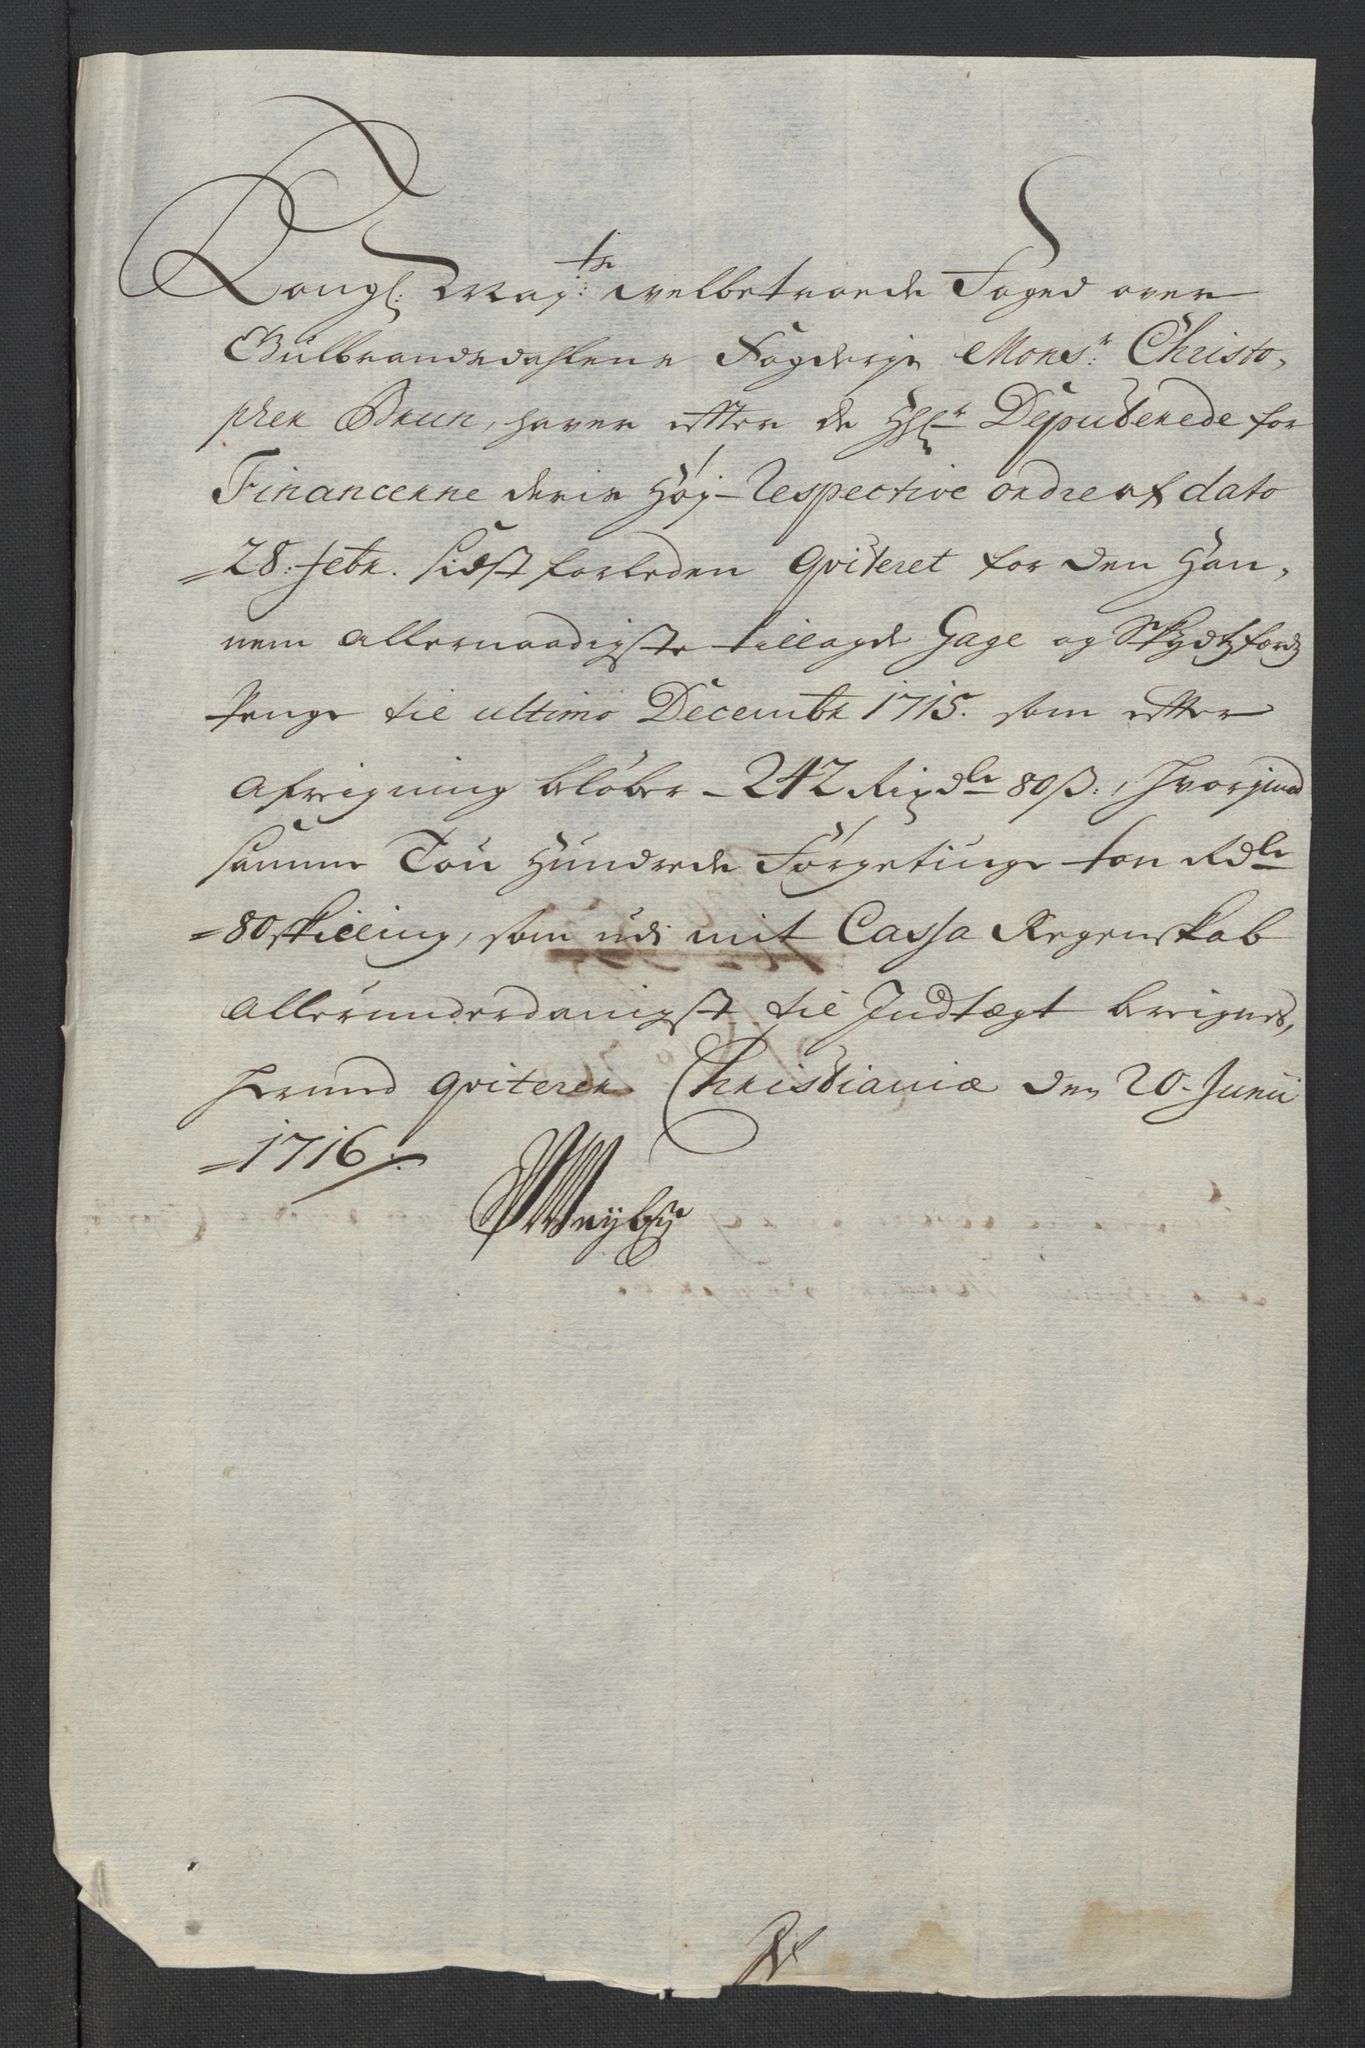 Kongl: May:ts velbetroede Foged over
Gulbrandsdahlens Fogderje Monsr: Christo,
pher Brun, haver efter de Hhlr Deputerede for
Financerne deris Høy-Respective ordre af dato
=28: febr. sidst forleden qviteret for den Han,
nem allernaadigste tillagde Gage og Skydtzferdz
Penge til ultimo Decembr 1715. som efter
afreigning beløber - 242 Rixdlr 80ß:, hvorimod
samme Tou Hundrede Førgetiuge toe Rdlr
=80 skilling, som udi mit Cassa Regenskab
allerunderdanigst til Indtægt bereignes,
hermed qviterer Christianiæ den 20. Junii
=1716/: